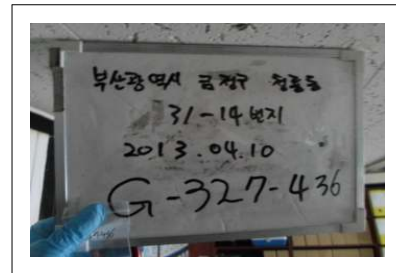 부산광역시 금정구 청룡동
31-14번지
2013.04.10
G-327-436